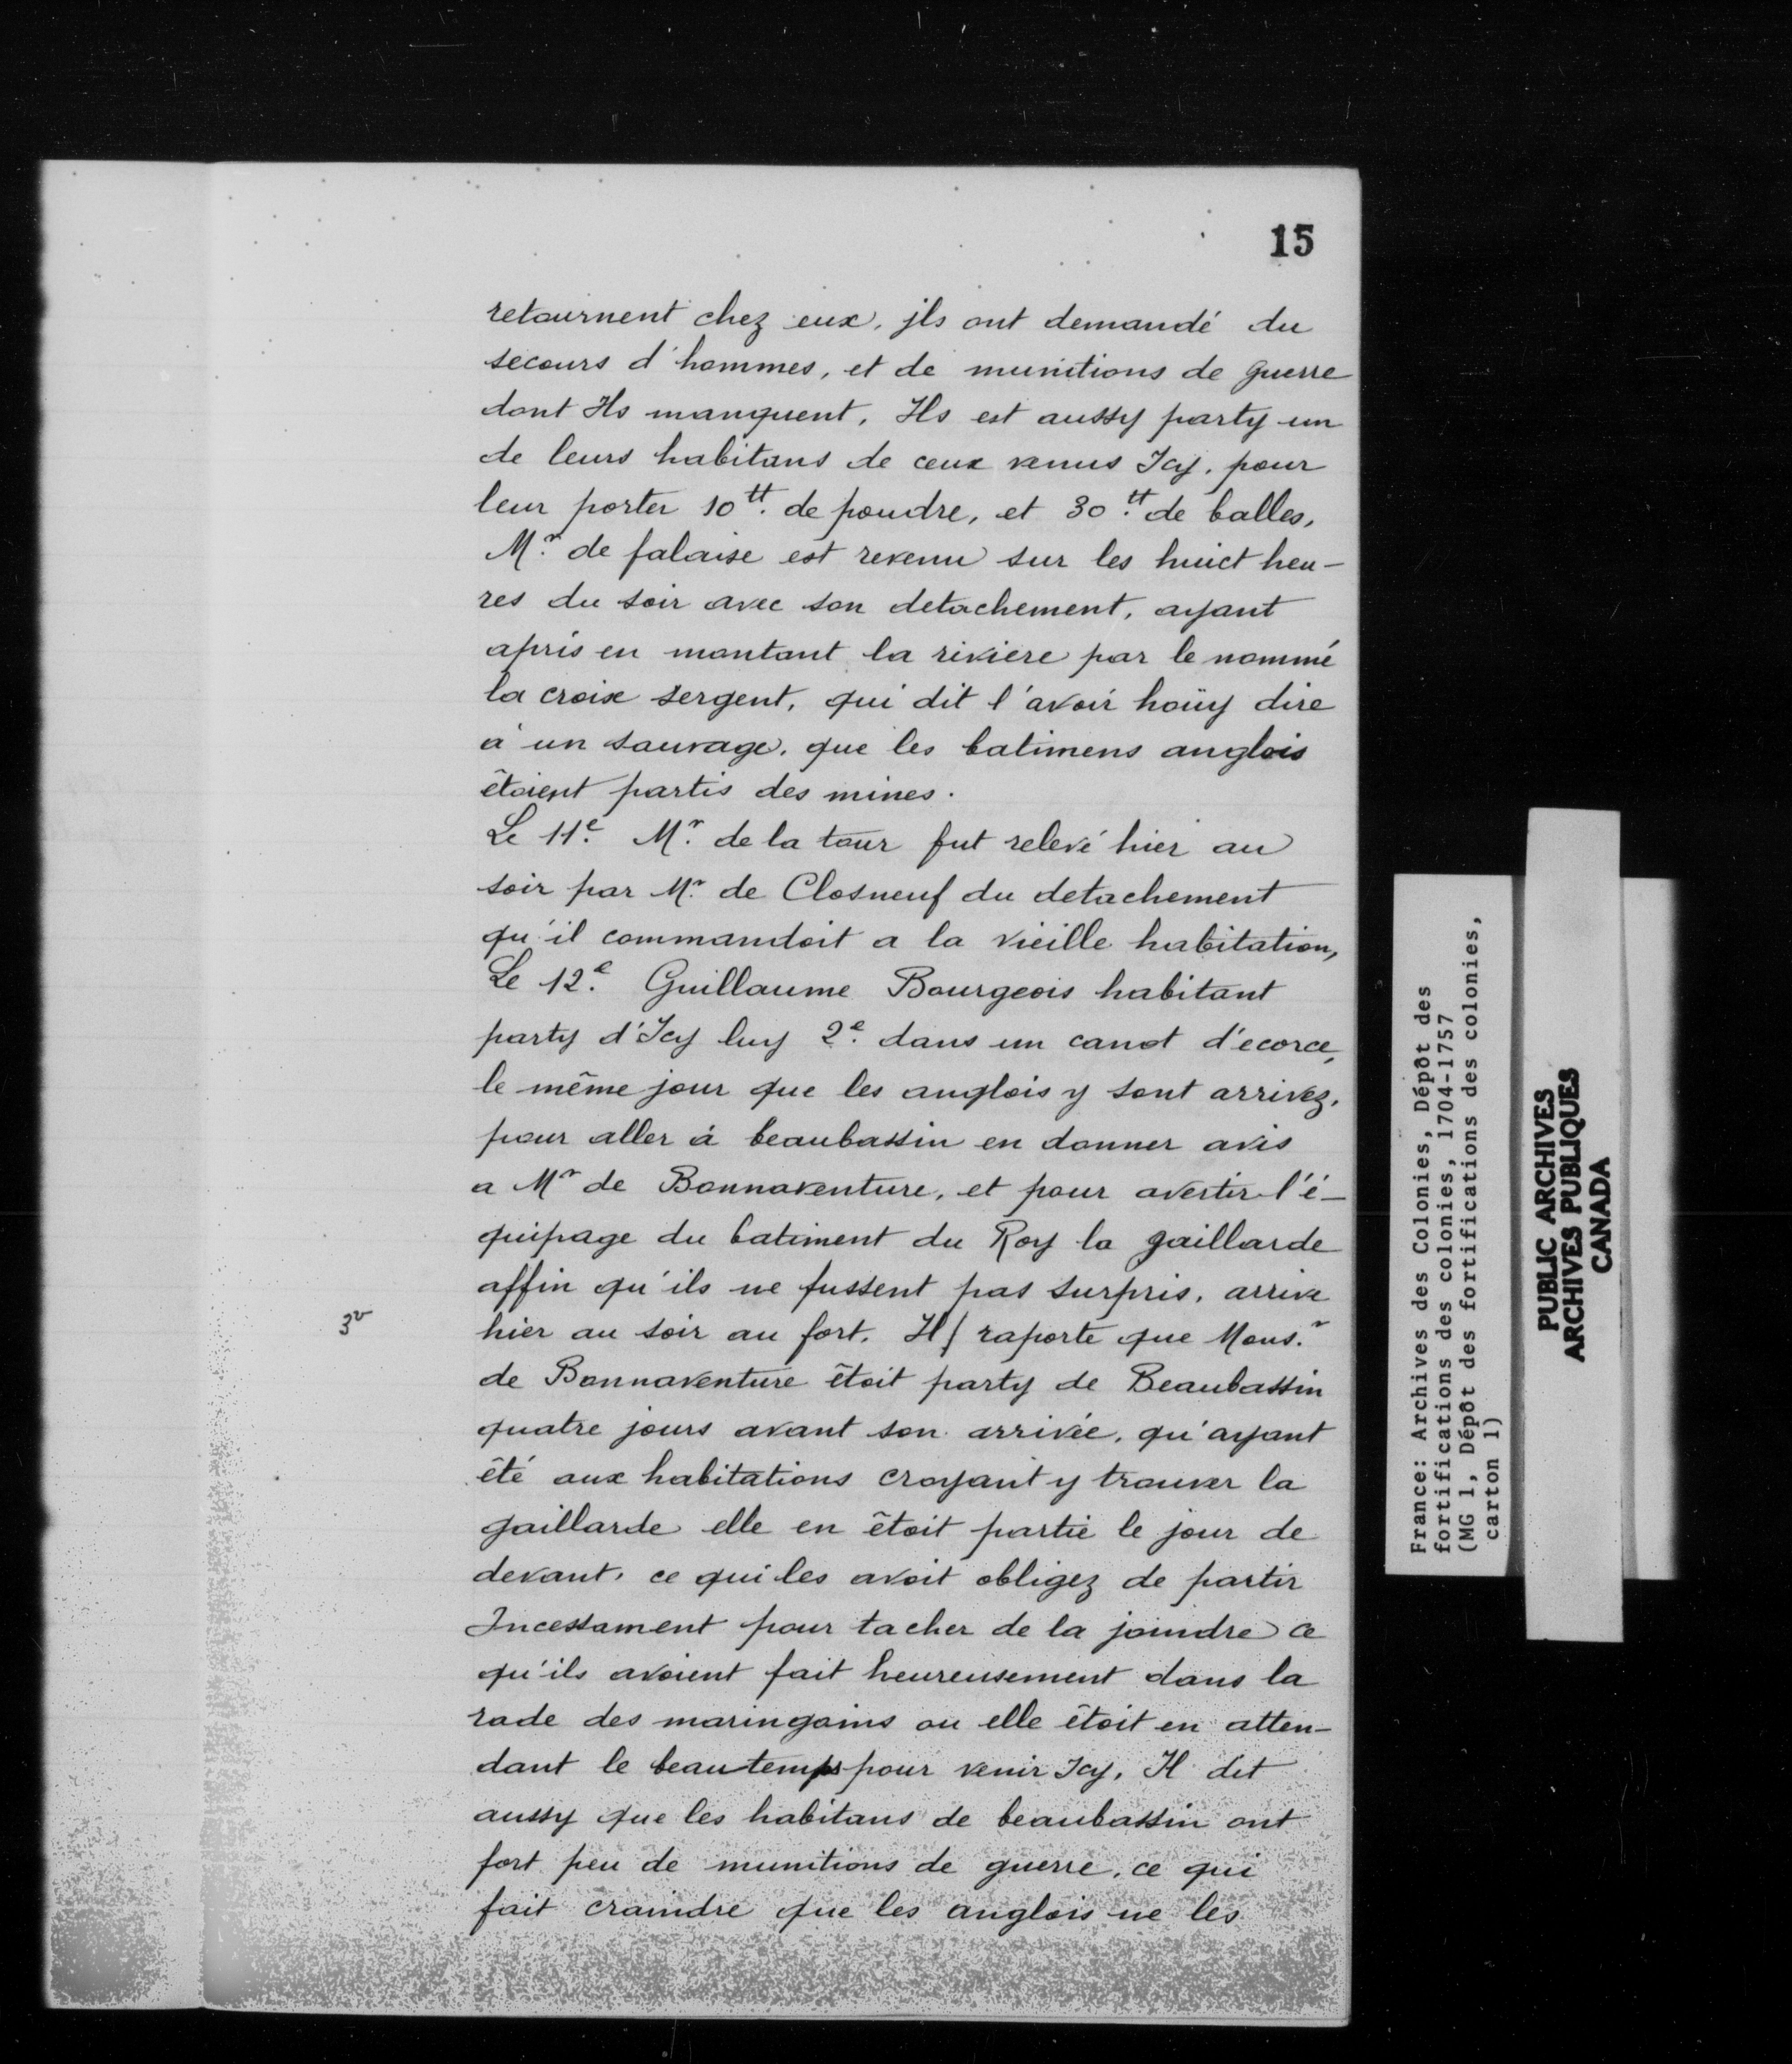 15
retournent chez eux, jls ont demandé du
secours d'hommes, et de munitions de guerre
dont Ils manquent, Ils est aussy party un
de leurs habitans de ceux venus Icy, pour
leur porter 10 tt. de poudre, et 30 tt. de balles,
Mr. de falaise est revenu sur les huict heu-
res du soir avec son detachement, ayant
apris en montant la riviere par le nommé
la croix sergent, qui dit l'avoir hoüy dire
à un sauvage, que les batimens anglois
étoient partis des mines.
Le 11e. Mr. de la tour fut relevé hier au
soir par Mr. de Closneuf du detachement
qu'il commandoit a la vieille habitation,
Le 12e. Guillaume Bourgeois habitant
party d'Icy luy 2e. dans un canot d'ecorce,
le même jour que les anglois y sont arrivez,
pour aller à beaubassin en donner avis
a Mr de Bonnaventure, et pour avertir l'é-
quipage du batiment du Roy la gaillarde
affin qu'ils ne fussent pas surpris, arriva
3v
hier au soir au fort. Il raporte que Mons.r
de Bonnaventure étoit party de Beaubassin
quatre jours avant son arrivée, qu'ayant
été aux habitations croyant y trouver la
gaillarde elle en étoit partie le jour de
devant, ce qui les avoit obligez de partir
Incessament pour tacher de la joindre ce
qu'ils avoient fait heureusement dans la
rade des maringoins ou elle étoit en atten-
dant le beau temps pour venir Icy, Il dit
aussy que les habitans de beaubassin ont
fort peu de munitions de guerre, ce qui
fait craindre que les anglois ne les
France: Archives des Colonies, Dépôt des
fortifications des colonies, 1704-1757
(MG 1, Dépôt des fortifications des colonies,
carton 1)
PUBLIC ARCHIVES
ARCHIVES PUBLIQUES
CANADA